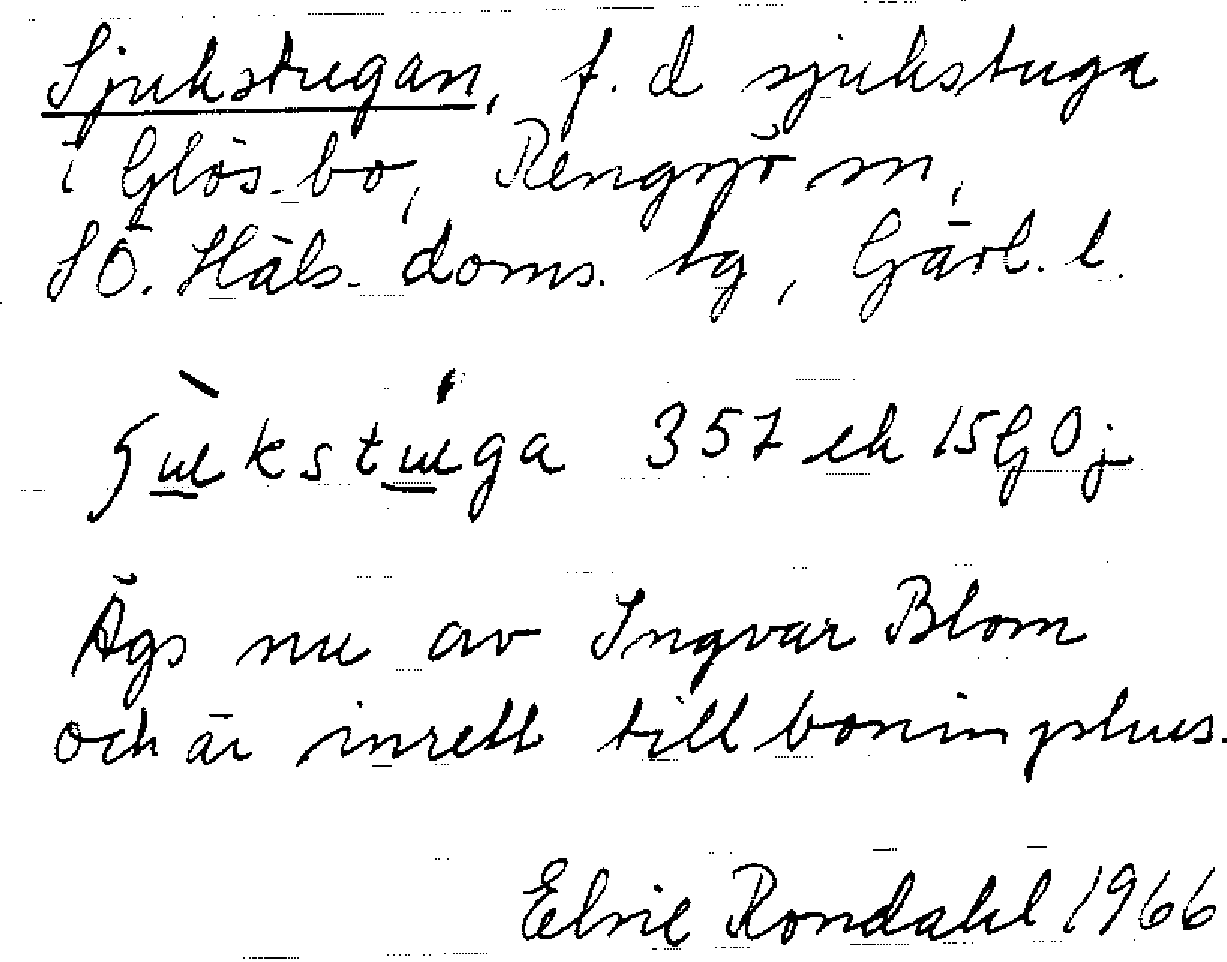 Sjukstugan, f. d sjukstuga
i Glös-bo, Rengsjö sn,
SÖ. Häls. doms. tg, Gävl. l.
357 ek 15G0j
Ägs nu av Ingvar Blom
och är inrett till boningshus.
Elvie Rondahl 1966